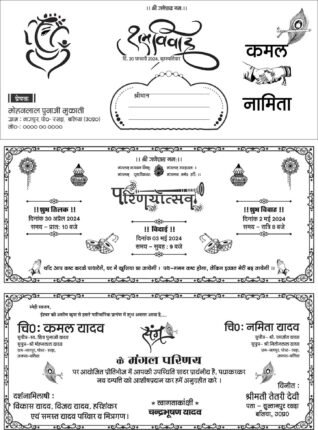 || श्री गणेशाय नमः ||
शुभ विवाह
दि. 30 फरवरी 2024, बृहस्पतिवार
श्रीमान
कमल
नामिता
प्रेषक:
मोहनलाल पुनाजी मुकाती
ग्राम : नागपुर, पो०- रसड़ा, बलिया, (उ०प्र०)
मो० : 0000 00 0000
|| श्री गणेशाय नमः ||
परिणयोत्सव
|| शुभ तिलक ||
दिनांक 30 अप्रैल 2024
समय - प्रातः 10 बजे
|| शुभ विवाह ||
दिनांक 2 मई 2024
समय - रात्रि 8 बजे
|| विदाई ||
दिनांक 03 मई 2024
समय - सुबह : 9 बजे
चि०: कमल यादव
संग
चि०: नमिता यादव
के मंगल परिणय
पर आयोजित प्रीतिभोज में आपकी उपस्थिति सादर प्रार्थनीय है, पधारकर
नव दम्पति को आशीष प्रदान कर हमें अनुग्रहित करें ।
दर्शनाभिलाषी :
विकास यादव, विजय यादव, हरिशंकर
एवं समस्त यादव परिवार व मित्रगण।
स्वागताकांक्षी
चन्द्रभूषण यादव
विनीत :
श्रीमती तेतरी देवी
बलिया, उ०प्र०